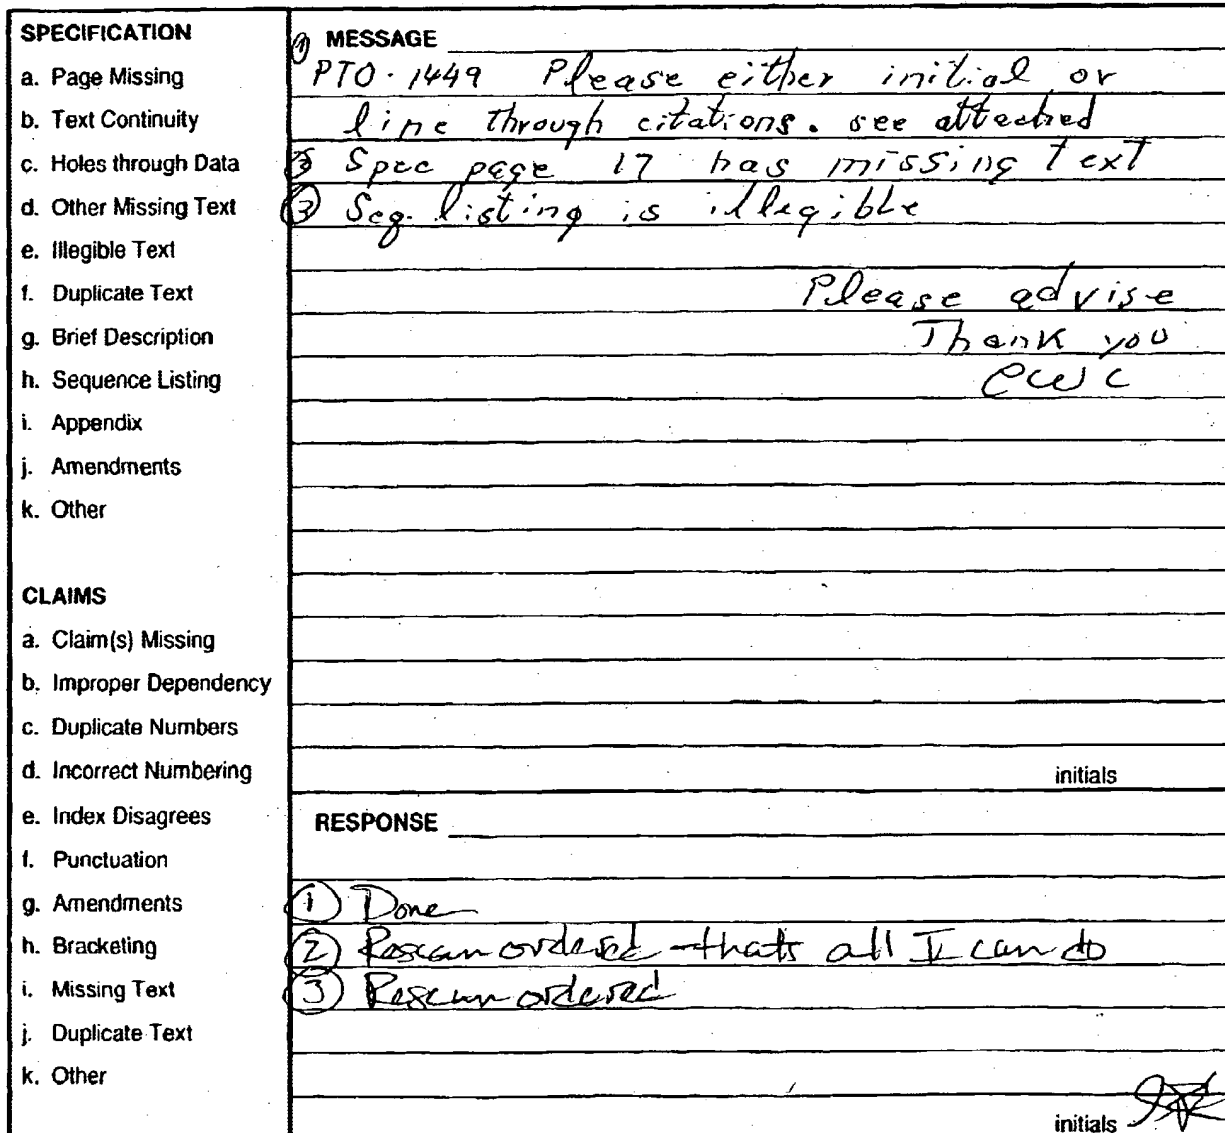 SPECIFICATION
a. Page Missing
b. Text Continuity
c. Holes through Data
d. Other Missing Text
e. Illegible Text
f. Duplicate Text
g. Brief Description
h. Sequence Listing
i. Appendix
j. Amendments
k. Other
CLAIMS
a. Claim(s) Missing
b. Improper Dependency
c. Duplicate Numbers
d. Incorrect Numbering
e. Index Disagrees
f. Punctuation
g. Amendments
h. Bracketing
i. Missing Text
j. Duplicate Text
k. Other
① MESSAGE
PTO-1449 Please either initial or
line through citations. see attached
② Spec page 17 has missing text
③ Seq. listing is illegible
Please advise
Thank you
initials
RESPONSE
① Done
② Rescan ordered - thats all I can do
③ Rescan ordered
initials